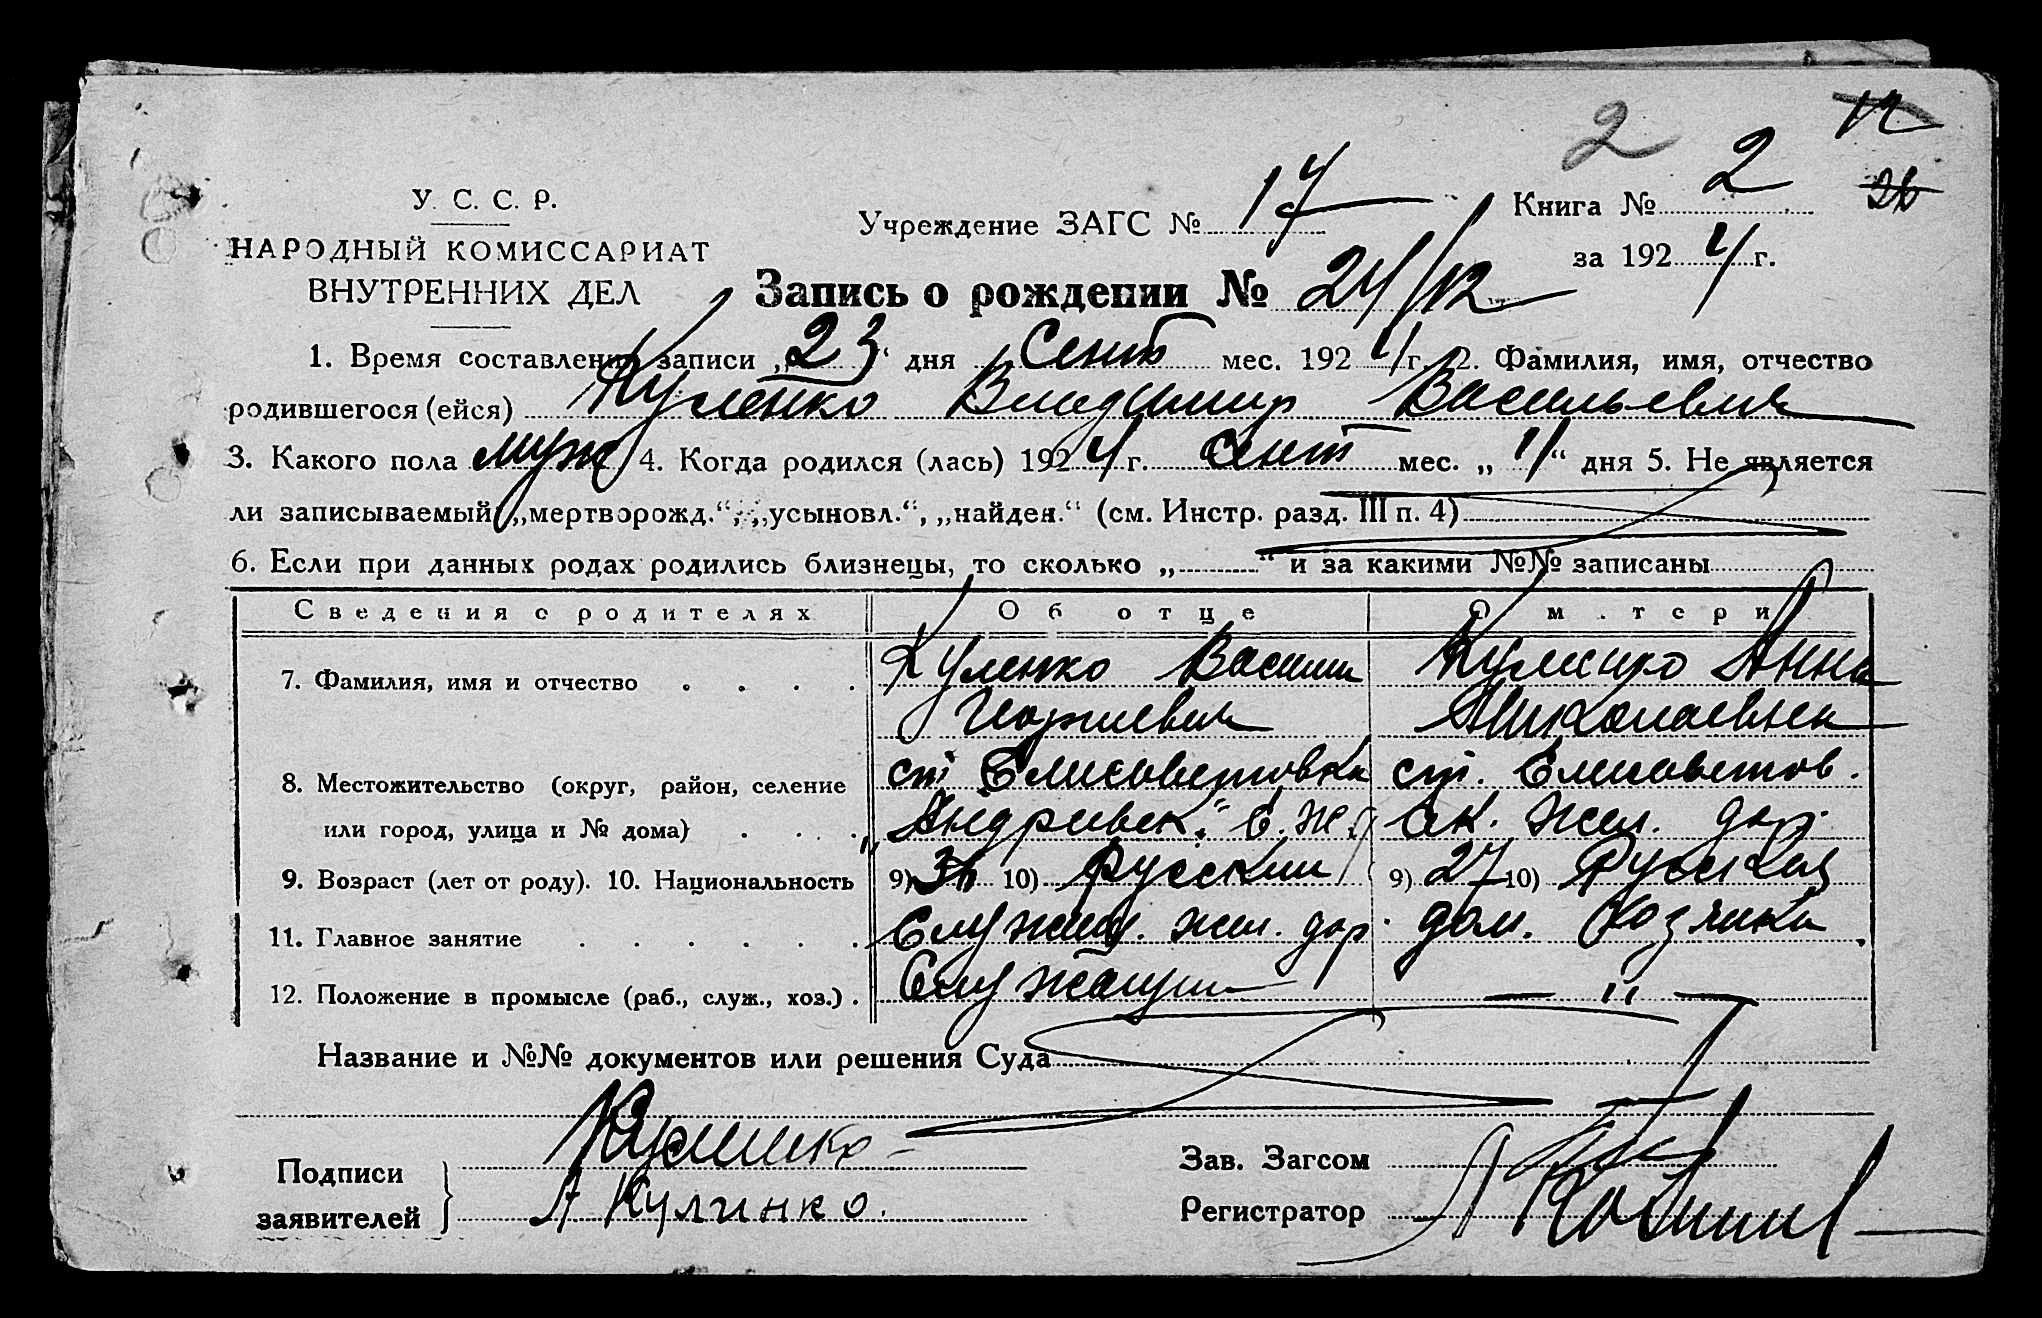 2 12
У. С. С. Р.
Учреждение ЗАГС № 17 Книга № 2 26
НАРОДНЫЙ КОМИССАРИАТ
ВНУТРЕННИХ ДЕЛ
за 1924 г.
Запись о рождении № 24/12
1. Время составления записи „23“ дня Сент мес. 1924 г. 2. Фамилия, имя, отчество
родившегося (ейся) Куленко Владимир Васильевич
3. Какого пола муж 4. Когда родился (лась) 1924 г. Сент мес. „11“ дня 5. Не является
ли записываемый „мертворожд.“, „усыновл.“, „найден.“ (см. Инстр. разд. III п. 4)
6. Если при данных родах родились близнецы, то сколько „ “ и за какими №№ записаны
Сведения о родителях Об отце О м.тери
7. Фамилия, имя и отчество Куленко Василий Куленко Анна
Георгиевич Николаевна
8. Местожительство (округ, район, селение ст Елисаветовка ст. Елисаветов.
или город, улица и № дома) „Андреевск.“ Ек. жел. дор.
9. Возраст (лет от роду). 10. Национальность 9) 10) Русский 9) 27 10) Русская
11. Главное занятие Служащ. жел. дор. дом. Хозяйка
12. Положение в промысле (раб., служ., хоз.) Служащий — " —
Название и №№ документов или решения Суда
Подписи заявителей } Куленко
А Куленко.
Зав. Загсом
Регистратор